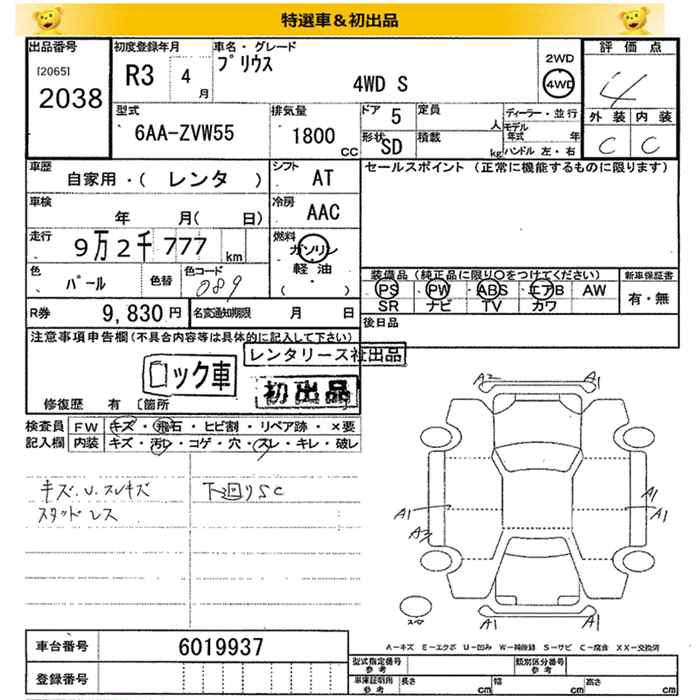 特選車＆初出品
出品番号
[2065]
2038
初度登録年月
R3 4月
車名・グレード
プリウス
4WD S
2WD
4WD
評価点
4
外装 内装
C C
型式
6AA-ZVW55
排気量
1800 CC
ドア 5
定員 人
形状 SD
積載 kg
ディーラー・並行
モデル年式 年
ハンドル 左・右
車歴
自家用・( レンタ )
シフト AT
セールスポイント (正常に機能するものに限ります)
車検 年 月( 日)
冷房 AAC
走行 9万2千777 km
燃料
ガソリン
軽油
( )
色 パール
色替
色コード 089
装備品 (純正品に限り○をつけてください)
PS PW ABS エアB AW
SR ナビ TV カワ
新車保証書
有・無
R券 9,830円
名変通知期限 月 日
後日品
注意事項申告欄 (不具合内容等は具体的に記入して下さい)
レンタリース社出品
ロック車
初出品
修復歴 有 〔箇所
検査員記入欄
FW キズ・飛石・ヒビ割・リペア跡・×要
内装 キズ・汚レ・コゲ・穴・スレ・キレ・破レ
キズ.U.スレキズ
スタッドレス
下回りSC
A2 A1
A1 A1
A1 A1
A3
A1 A1
A-キズ E-エクボ U-凹み W-補修跡 S-サビ C-腐食 XX-交換済
車台番号 6019937
登録番号
型式指定番号 参考
類別区分番号 参考
車庫証明用 参考
長さ cm
幅 cm
高さ cm